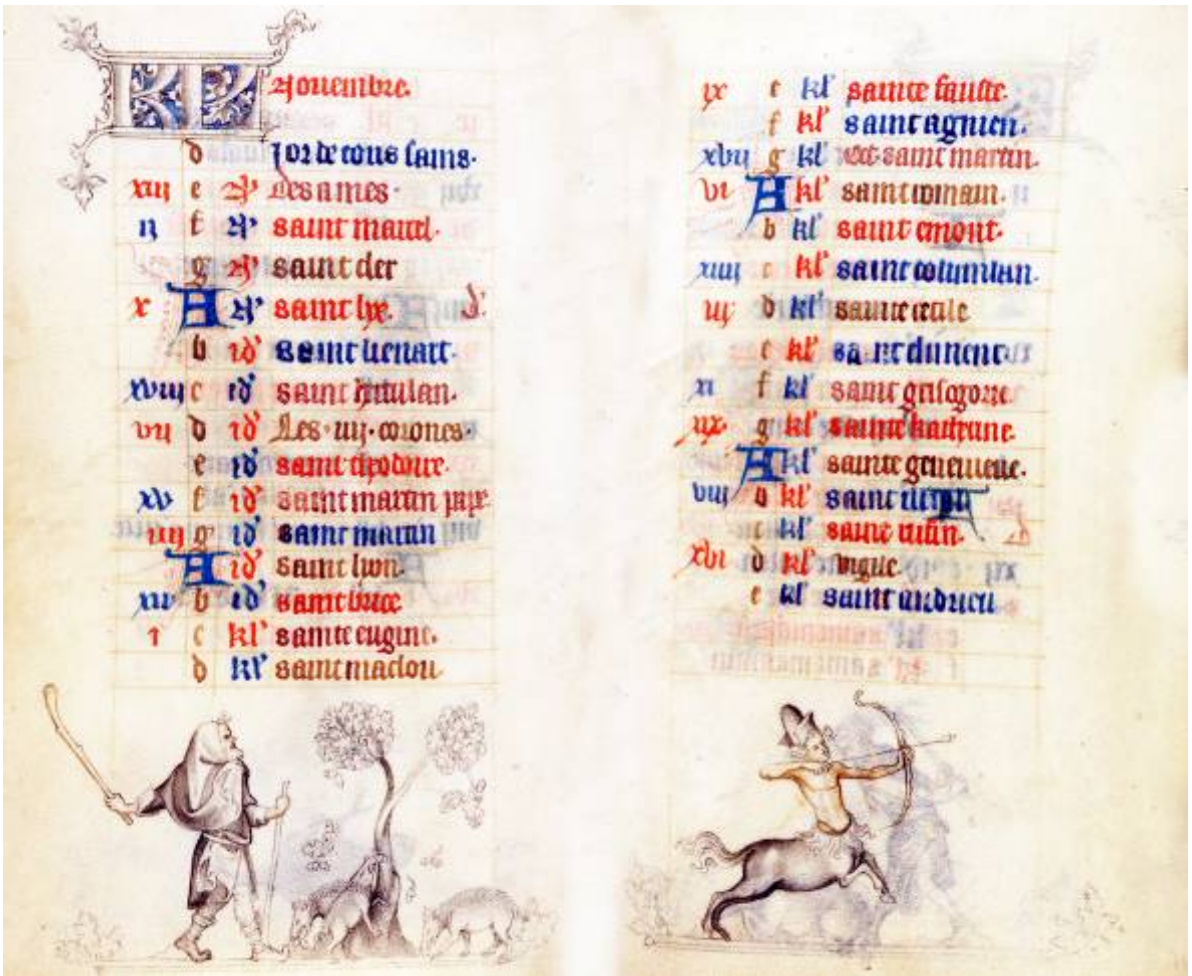 KL Nouembre.
d Jor de tous sains.
xiij e N' Les ames.
ij f N' saint marcel.
g N' saint cler
x A N' saint
b id' saint lienart.
xviij c id' saint
vij d id' Les .iiij. corones.
e id' saint theodore.
xv f id' saint martin pape
iiij g id' saint martin
A id' saint lion.
xij b id' saint brice
i c kl' sainte eugine.
d kl' saint maclou
ix e kl' sainte fauste.
f kl' saint agnien.
xvij g kl' oct saint martin.
vi A kl' saint
b kl' saint emont.
xiiij c kl' saint columban.
iij d kl' sainte cecile
e kl' saint climent
xi f kl' saint grisogone
g kl' sainte katerine
A kl' sainte genevieve.
viij b kl' saint
c kl' saint
xvi d kl' vigile
e kl' saint andrieu